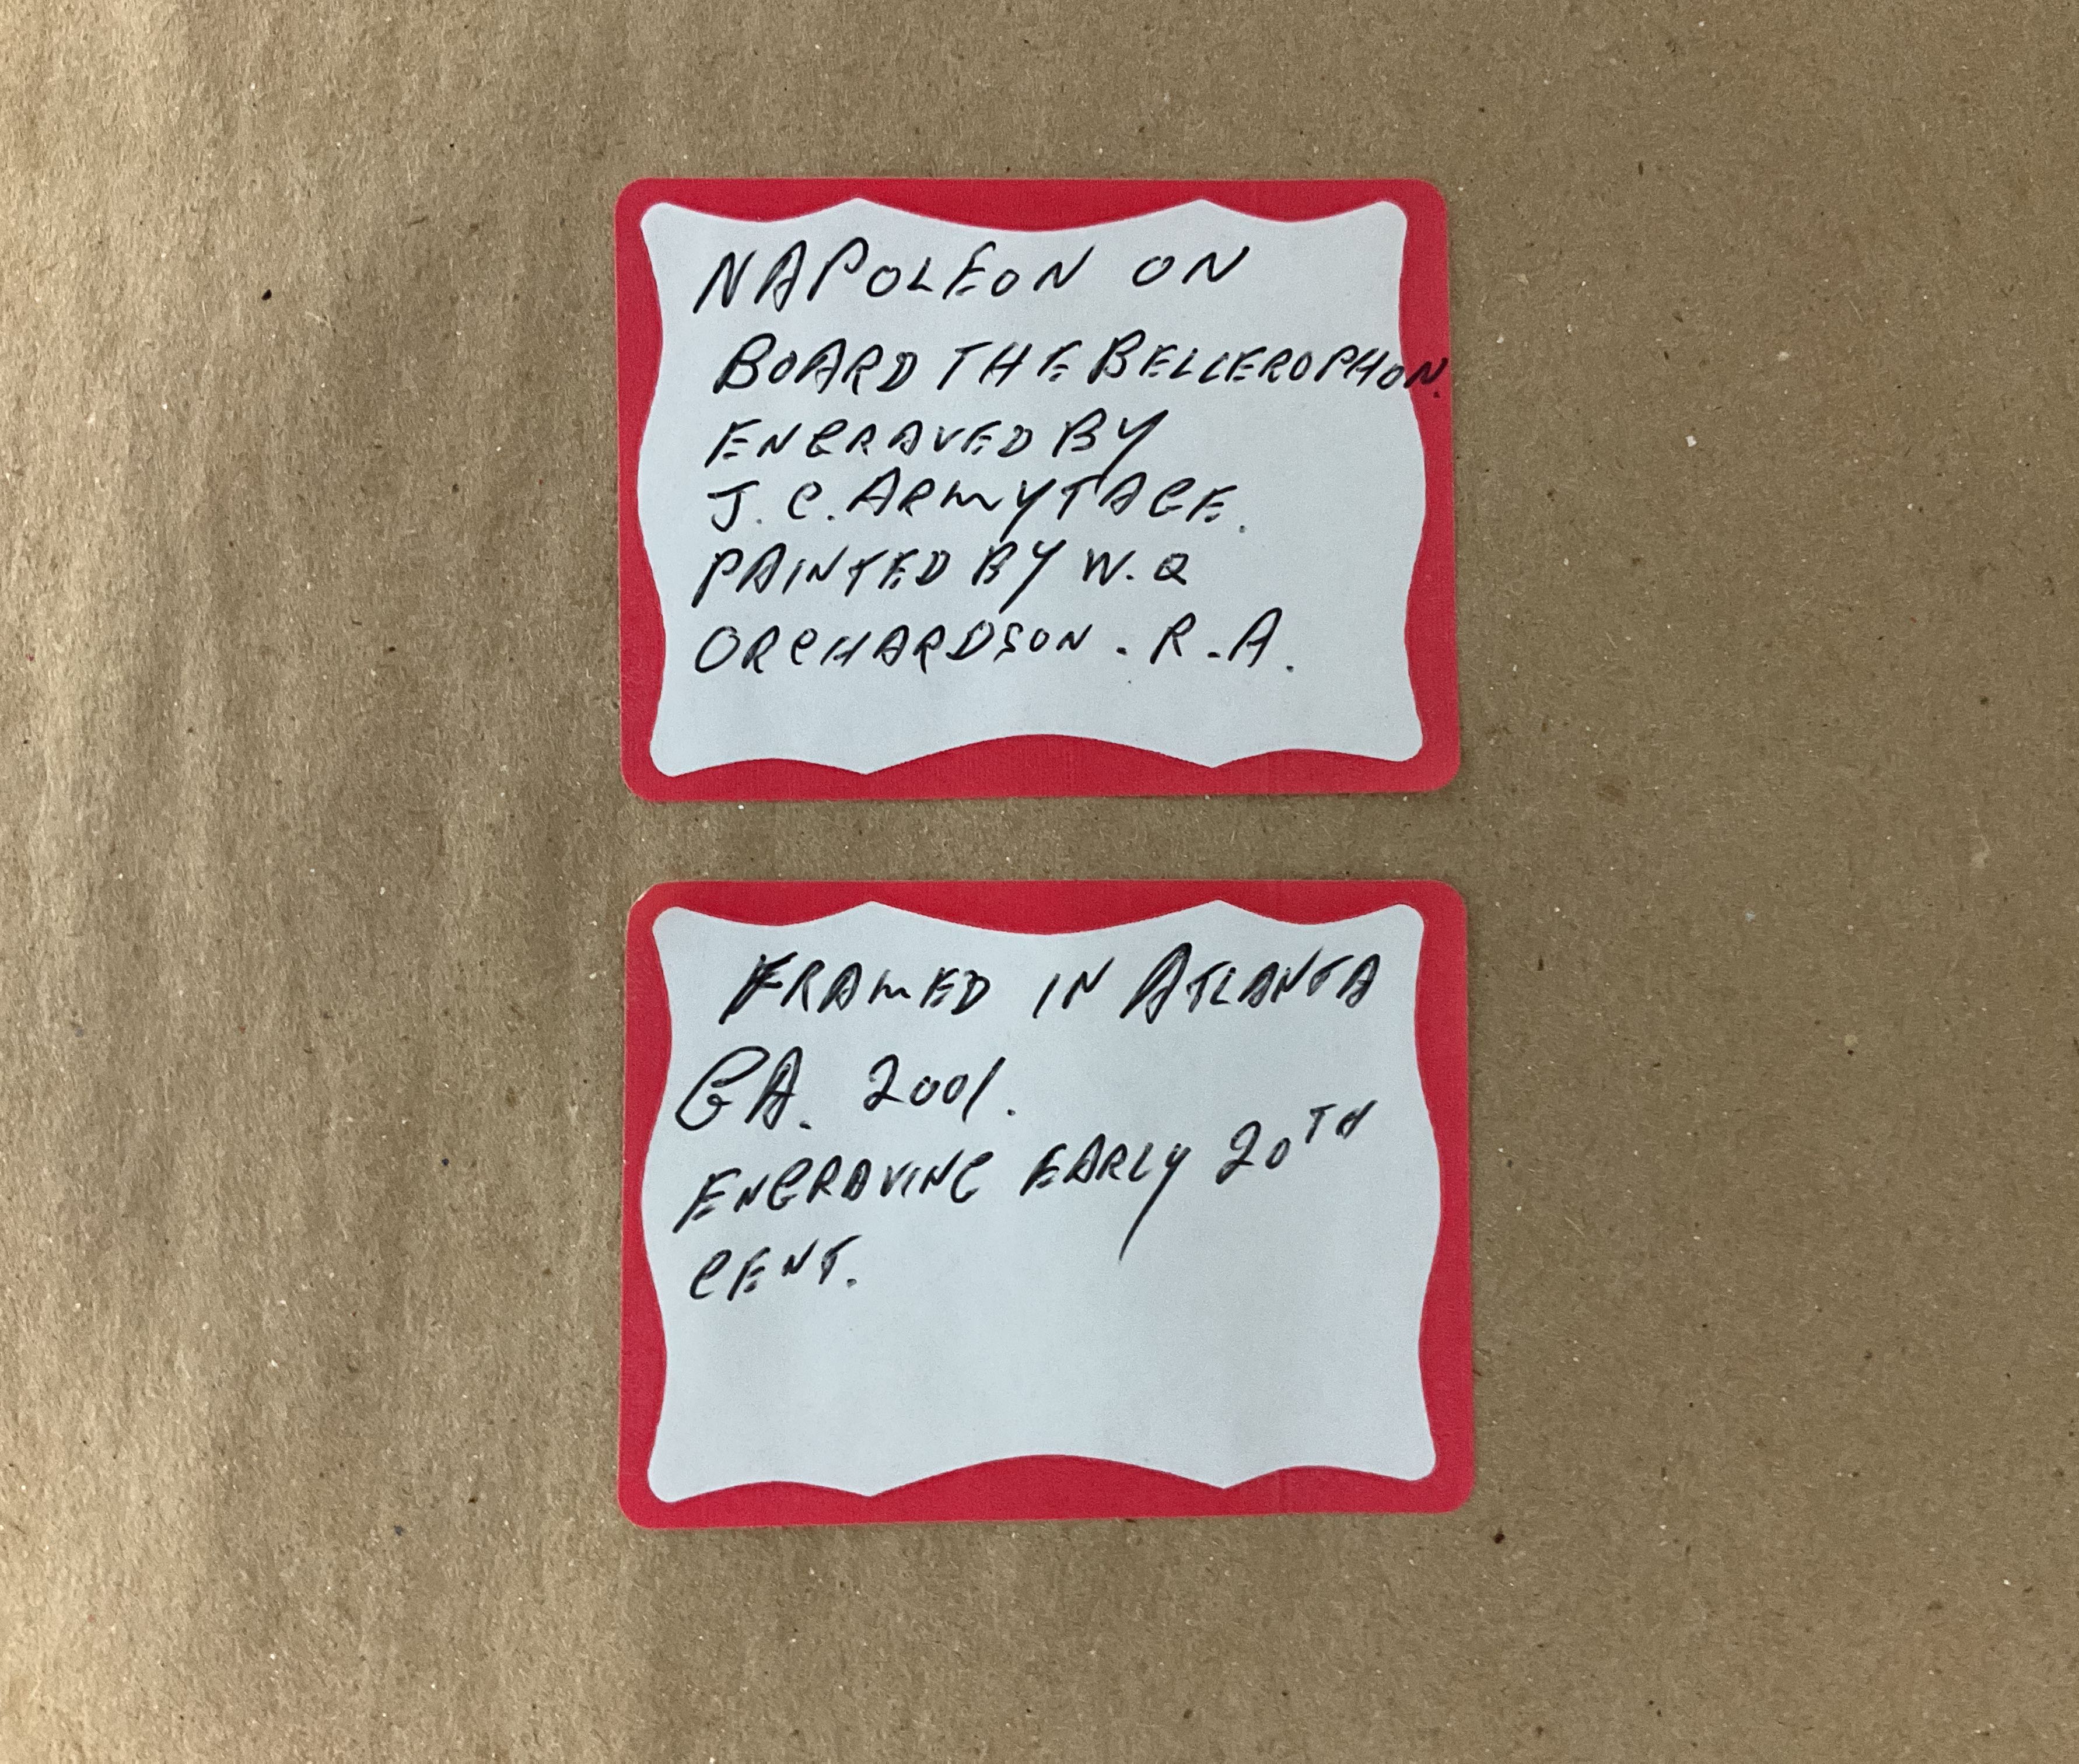 NAPOLEON ON
BOARD THE BELLEROPHON.
ENGRAVED BY
J. C. ARMYTAGE.
PAINTED BY W. Q
ORCHARDSON. R.A.
FRAMED IN ATLANTA
GA. 2001.
ENGRAVING EARLY 20TH
CENT.